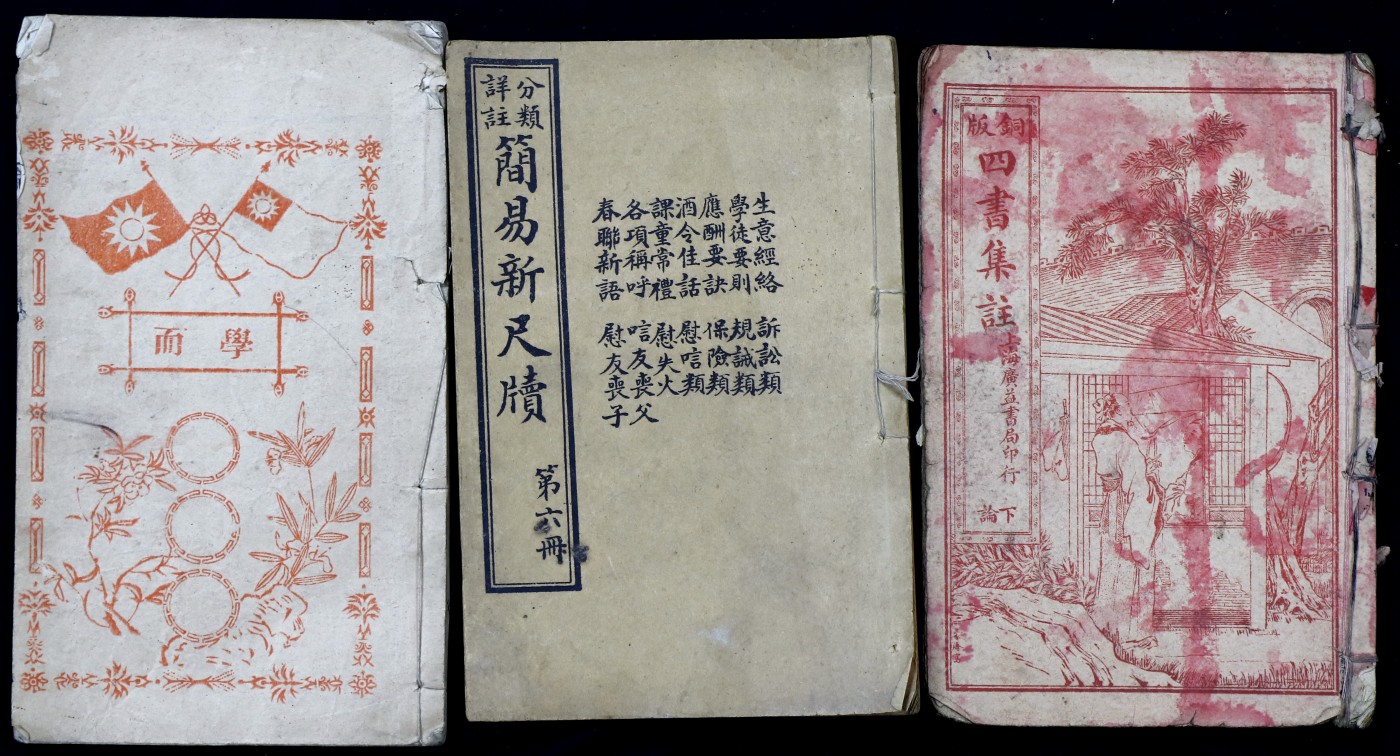 學而
分類
詳註
簡易新尺牘
第六冊
生意經絡 訴訟類
學徒要則 規誡類
應酬要訣 保險類
酒令佳話 慰唁類
課童常禮 慰失火
各項稱呼 唁友喪父
春聯新語 慰友喪子
銅版
四書集註
上海廣益書局印行
下論